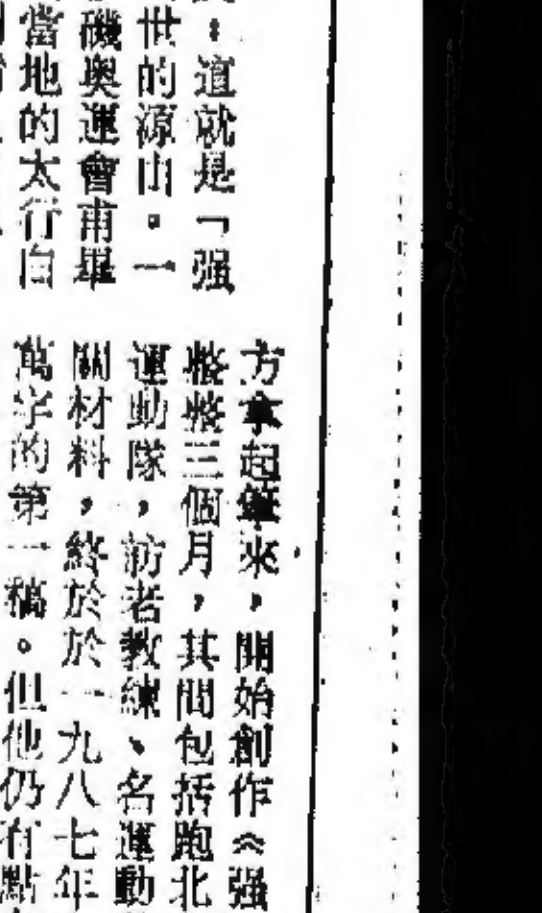 。這就是「强
世的源由。一
磯奧運會甫畢
當地的太行
方拿起筆來，開始創作《强
整整三個月，其間包括跑北
運動隊，訪老教練、名運動
關材料，終於於一九八七年
萬字的第一稿。但他仍有點